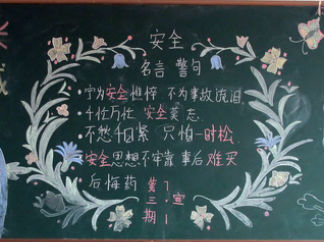 安全
名言 警句
·宁为安全憔悴 不为事故流泪
·千忙万忙 安全莫忘
·不愁千日紧 只怕一时松
安全思想不牢靠 事后难买
后悔药
第
三 宣
期